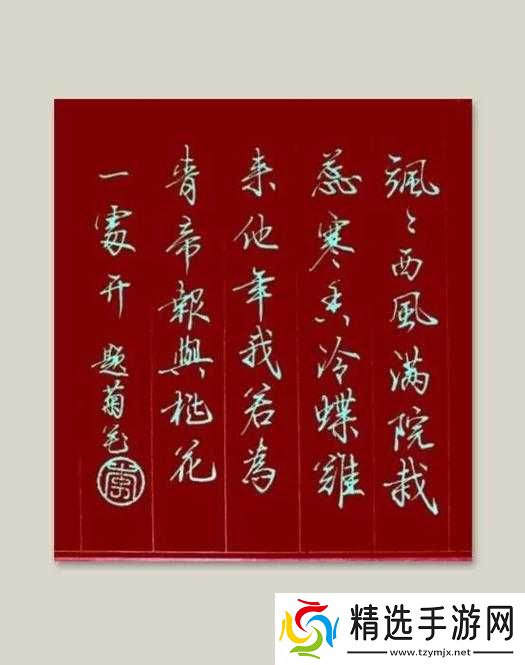 飒々西风满院栽
蕊寒香冷蝶难
来他年我若為
青帝報與桃花
一處开 题菊花
精选手游网
www.tzymjx.net